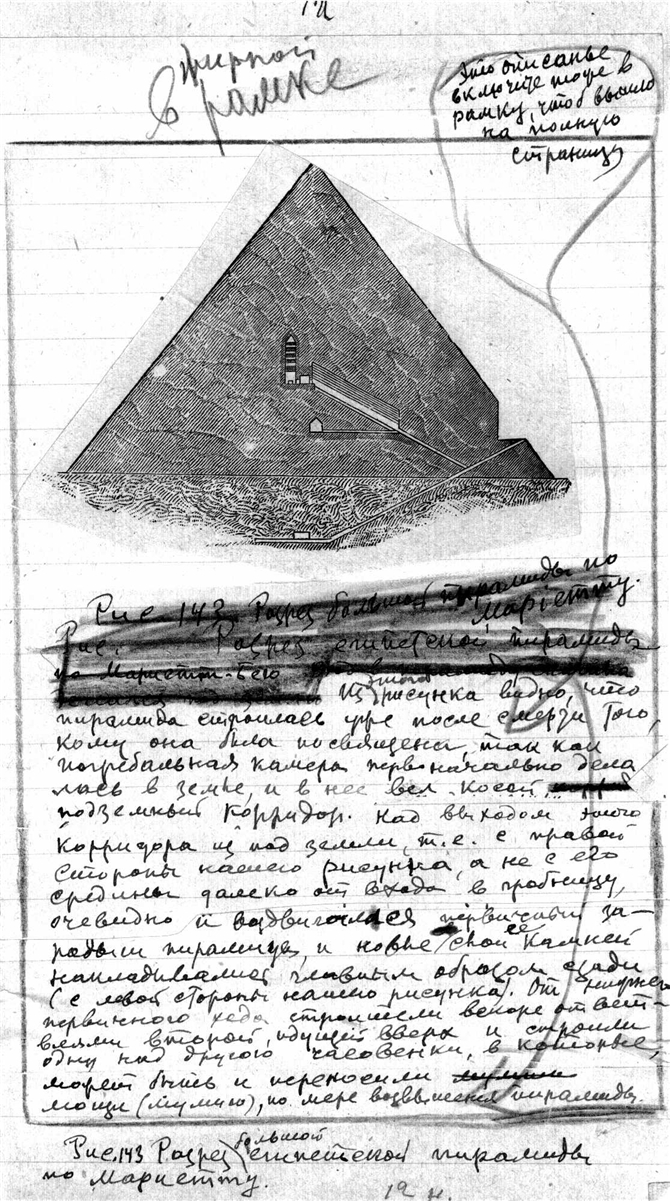 жирной
в рамке
Это описанье
включите тоже в
рамку, чтоб вышло
на полную
страницу
Рис. 143. Разрез большой пирамиды по
Мариетту.
Рис. Разрез египетской пирамиды
по Мариетт-Бею
Из этого рисунка видно, что
пирамида строилась уже после смерти того,
кому она была посвящена, так как
погребальная камера первоначально дела
лась в земле, и в нее вел косой
подземный корридор. Над выходом этого
корридора из под земли, т.е. с правой
стороны нашего рисунка, а не с его
средины далеко от входа в гробницу,
очевидно и воздвигался первичный за-
родыш пирамиды, и новые слои ее камней
накладывались главным образом сзади
(с левой стороны нашего рисунка). От
первичного хода строители вскоре ответ-
вляли второй, идущий вверх и строили
одну над другою часовенки, в которые,
может быть и переносили
мощи (мумию), по мере возвышения пирамиды.
Рис. 143 Разрез большой египетской пирамиды
по Мариетту.